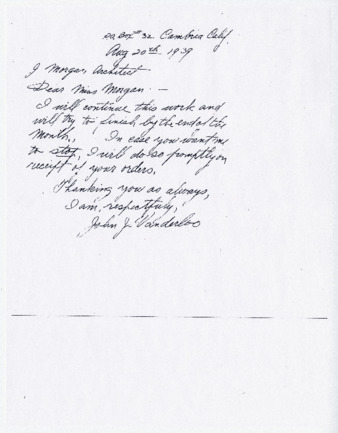 P.O. Box # 32 Cambria Calif.
Aug 20th - 1939
J Morgan, Architect
Dear Miss Morgan. -
I will continue this work and
will try to finish by the end of the
month. In case you want me
to stop, I will do so promptly on
receipt of your orders.
Thanking you as always,
I am, respectfully,
John J. Vanderloo